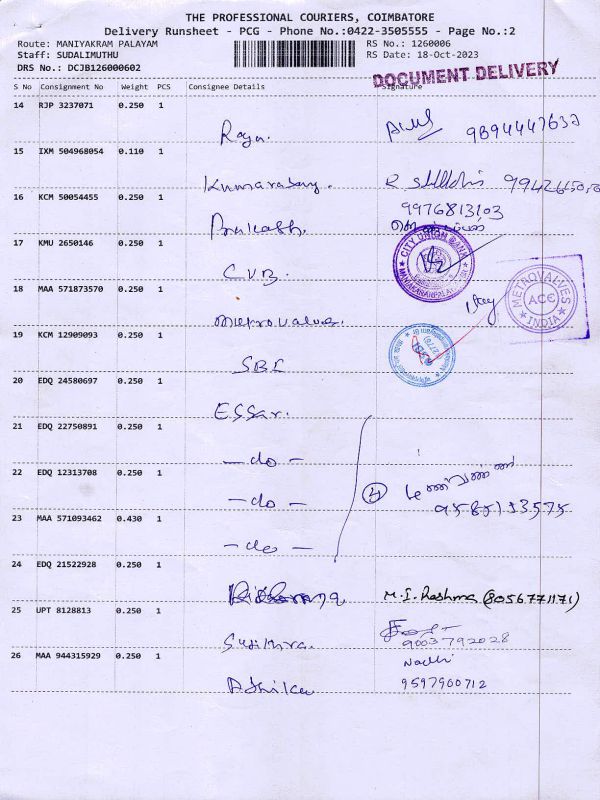 THE PROFESSIONAL COURIERS, COIMBATORE
Delivery Runsheet - PCG - Phone No.:0422-3505555 - Page No.:2
Route: MANIYAKRAM PALAYAM RS No.: 1260006
Staff: SUDALIMUTHU RS Date: 18-Oct-2023
DRS No.: DCJB126000602 DOCUMENT DELIVERY
S No Consignment No Weight PCS Consignee Details Signature
14 RJP 3237071 0.250 1
Raja. 9894447632
15 IXM 504968054 0.110 1
Kumarasamy.
16 KCM 50054455 0.250 1
9976813103
Prakash.
17 KMU 2650146 0.250 1
CITY UNION BANK
CUB.
18 MAA 571873570 0.250 1
METROVALVES ACE INDIA
metrovalves.
19 KCM 12909093 0.250 1
SBI
20 EDQ 24580697 0.250 1
ESSar.
21 EDQ 22750891 0.250 1
— do —
22 EDQ 12313708 0.250 1
— do — 4
9585133575
23 MAA 571093462 0.430 1
— do —
24 EDQ 21522928 0.250 1
M.I. Rashma (8056771171)
25 UPT 8128813 0.250 1
Sujithra. 9003792028
26 MAA 944315929 0.250 1
9597900712